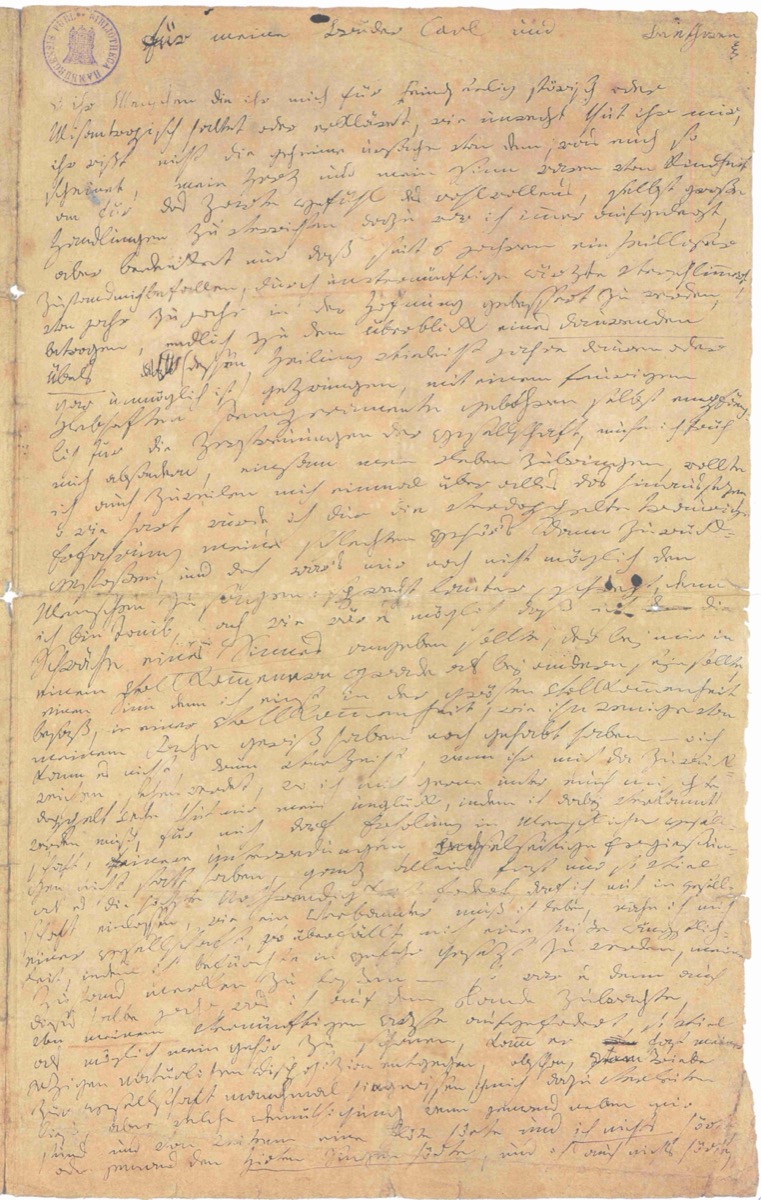 BIBLIOTHECA HAMBURGENSIS PUBL.
für meine Brüder Carl und Beethowen
o ihr Menschen die ihr mich für feindseelig störisch oder
Misantropisch haltet oder erkläret, wie unrecht thut ihr mir,
ihr wißt nicht die geheime ursache von dem, was euch so
scheinet, mein Herz und mein Sinn waren von Kindheit
an für das Zarte gefühl des wohlwollens, selbst große
Handlungen zu verrichten dazu war ich imer aufgelegt,
aber bedenket nur daß seit 6 jahren ein heilloser
Zustand mich befallen, durch unvernünftige ärzte verschlimmert,
von jahr zu jahr in der Hofnung gebessert zu werden,
betrogen, endlich zu dem überblick eines daurenden
Übels (dessen Heilung vieleicht jahre dauren oder
gar unmöglich ist) gezwungen, mit einem feurigen
Lebhaften Temperamente gebohren selbst empfäng-
lich für die Zerstreuungen der gesellschaft, muste ich früh
mich absondern, einsam mein Leben zubringen, wollte
ich auch zuweilen mich einmal über alles das hinaussezen,
o wie hart wurde ich dur die verdoppelte traurige
Erfahrung meines schlechten gehör's dann zurück-
gestoßen, und doch war's mir noch nicht möglich den
Menschen zu sagen: sprecht lauter, schrejt, denn
ich bin taub, ach wie wär es möglich daß ich die
Schwäche eines Sinnes angeben sollte, der bej mir in
einem vollkommenern grade als bej andern seyn sollte,
einen Sinn denn ich einst in der grösten vollkommenheit
besaß, in einer vollkommenheit, wie ihn wenige von
meinem Fache gewiß haben noch gehabt haben – o ich
kann es nicht, drum verzeiht, wenn ihr mich da zurück-
weichen sehen werdet, wo ich mich gerne unter euch mischte
doppelt wehe thut mir mein unglück, indem ich dabej verkannt
werden muß, für mich darf Erholung in Menschlicher gesell-
schaft, feinere unterredungen, wechselseitige Ergießun-
gen nicht statt haben, ganz allein fast nur so viel
als es die höchste Nothwendigkeit fodert darf ich mich in gesell-
schaft einlassen, wie ein Verbannter muß ich leben, nahe ich mich
einer gesellschaft, so überfällt mich eine heiße ängstlich-
keit, indem ich befürchte in gefahr gesezt zu werden, meinen
Zustand merken zu laßen — so war es denn auch
dieses halbe jahr was ich auf dem Lande zubrachte,
von meinem vernünftigen arzte aufgefodert, so viel
als möglich mein gehör zu schonen, kamm er fast meiner
jezigen natürlichen Disposizion entgegen, obschon, vom Triebe
zur gesellschaft manchmal hingerissen, ich mich dazu verleiten
ließ, aber welche demüthigung wenn jemand neben mir
stund und von weitem eine flöte hörte und ich nichts hörte
oder jemand den Hirten Singen hörte, und ich auch nichts hörte,